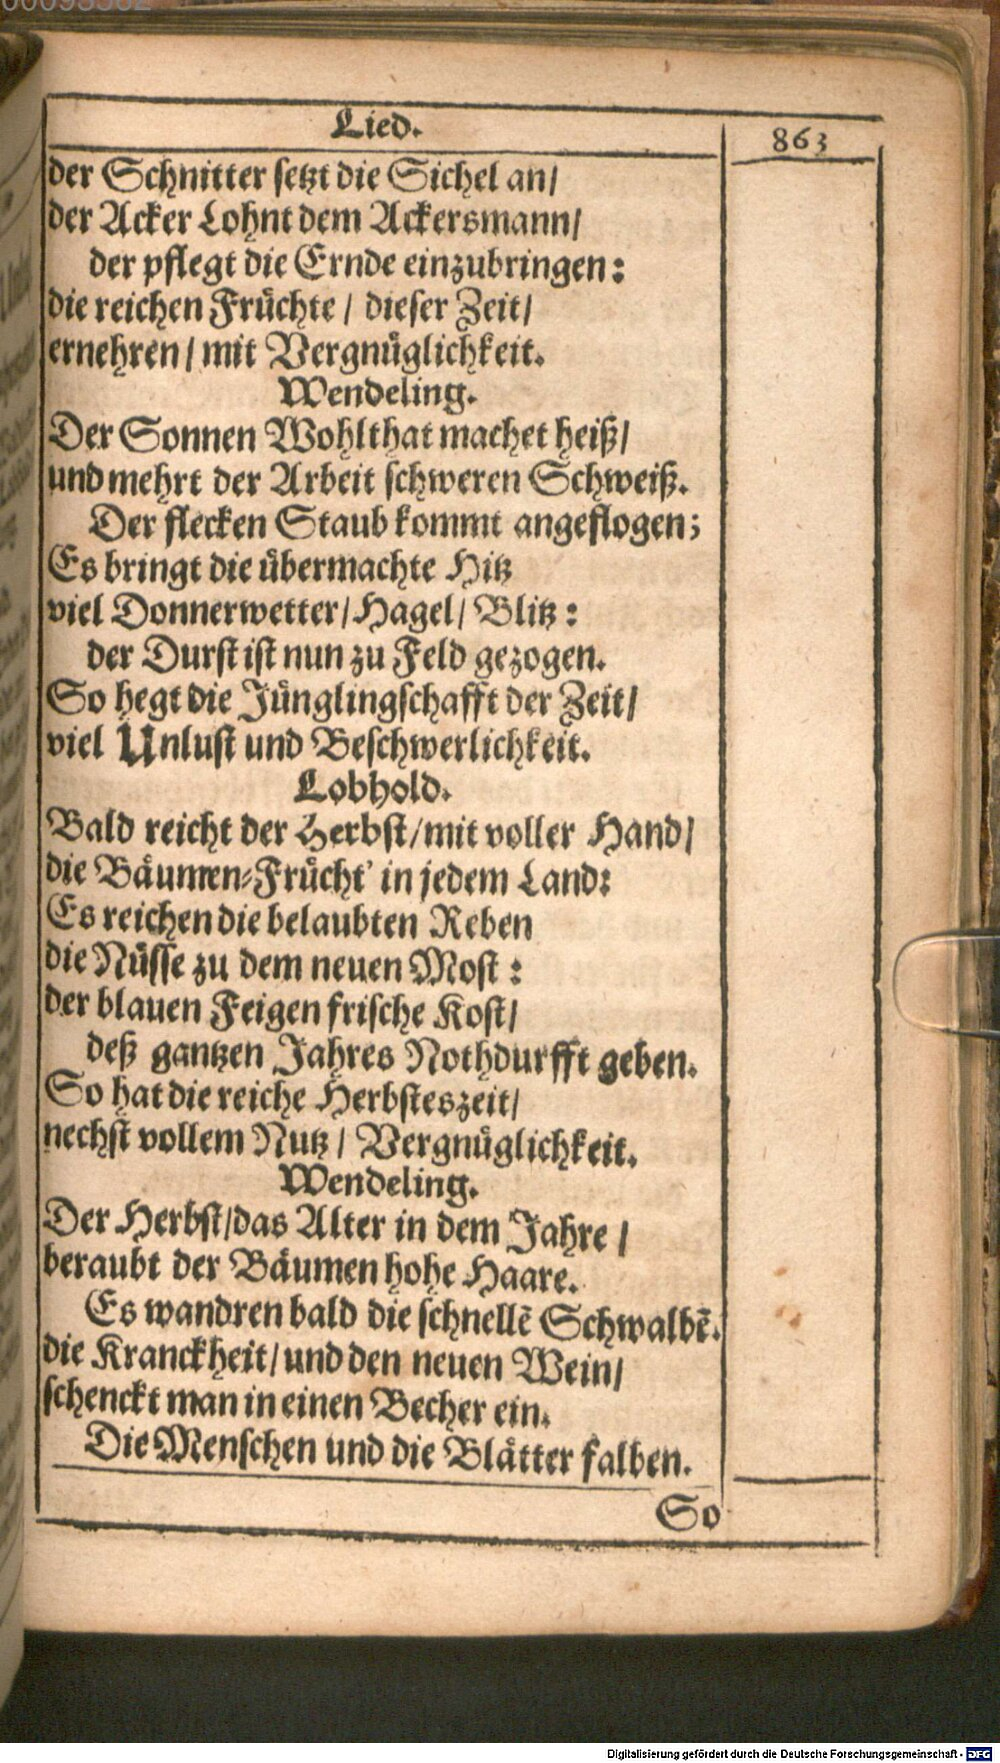 00093582
Lied.
863
der Schnitter setzt die Sichel an/
der Acker Lohnt dem Ackersmann/
der pflegt die Ernde einzubringen:
die reichen Fruͤchte / dieser Zeit/
ernehren/ mit Vergnuͤglichkeit.
Wendeling.
Der Sonnen Wohlthat machet heiß/
und mehrt der Arbeit schweren Schweiß.
Der flecken Staub kommt angeflogen;
Es bringt die uͤbermachte Hitz
viel Donnerwetter/ Hagel/ Blitz:
der Durst ist nun zu Feld gezogen.
So hegt die Juͤnglingschafft der Zeit/
viel Unlust und Beschwerlichkeit.
Lobhold.
Bald reicht der Herbst/mit voller Hand/
die Baͤumen-Fruͤcht' in jedem Land:
Es reichen die belaubten Reben
die Nuͤsse zu dem neuen Most:
der blauen Feigen frische Kost/
deß gantzen Jahres Nothdurfft geben.
So hat die reiche Herbsteszeit/
nechst vollem Nutz / Vergnuͤglichkeit.
Wendeling.
Der Herbst/das Alter in dem Jahre /
beraubt der Baͤumen hohe Haare.
Es wandren bald die schnellẽ Schwalbẽ.
die Kranckheit/ und den neuen Wein/
schenckt man in einen Becher ein.
Die Menschen und die Blaͤtter falben.
So
Digitalisierung gefördert durch die Deutsche Forschungsgemeinschaft - DFG